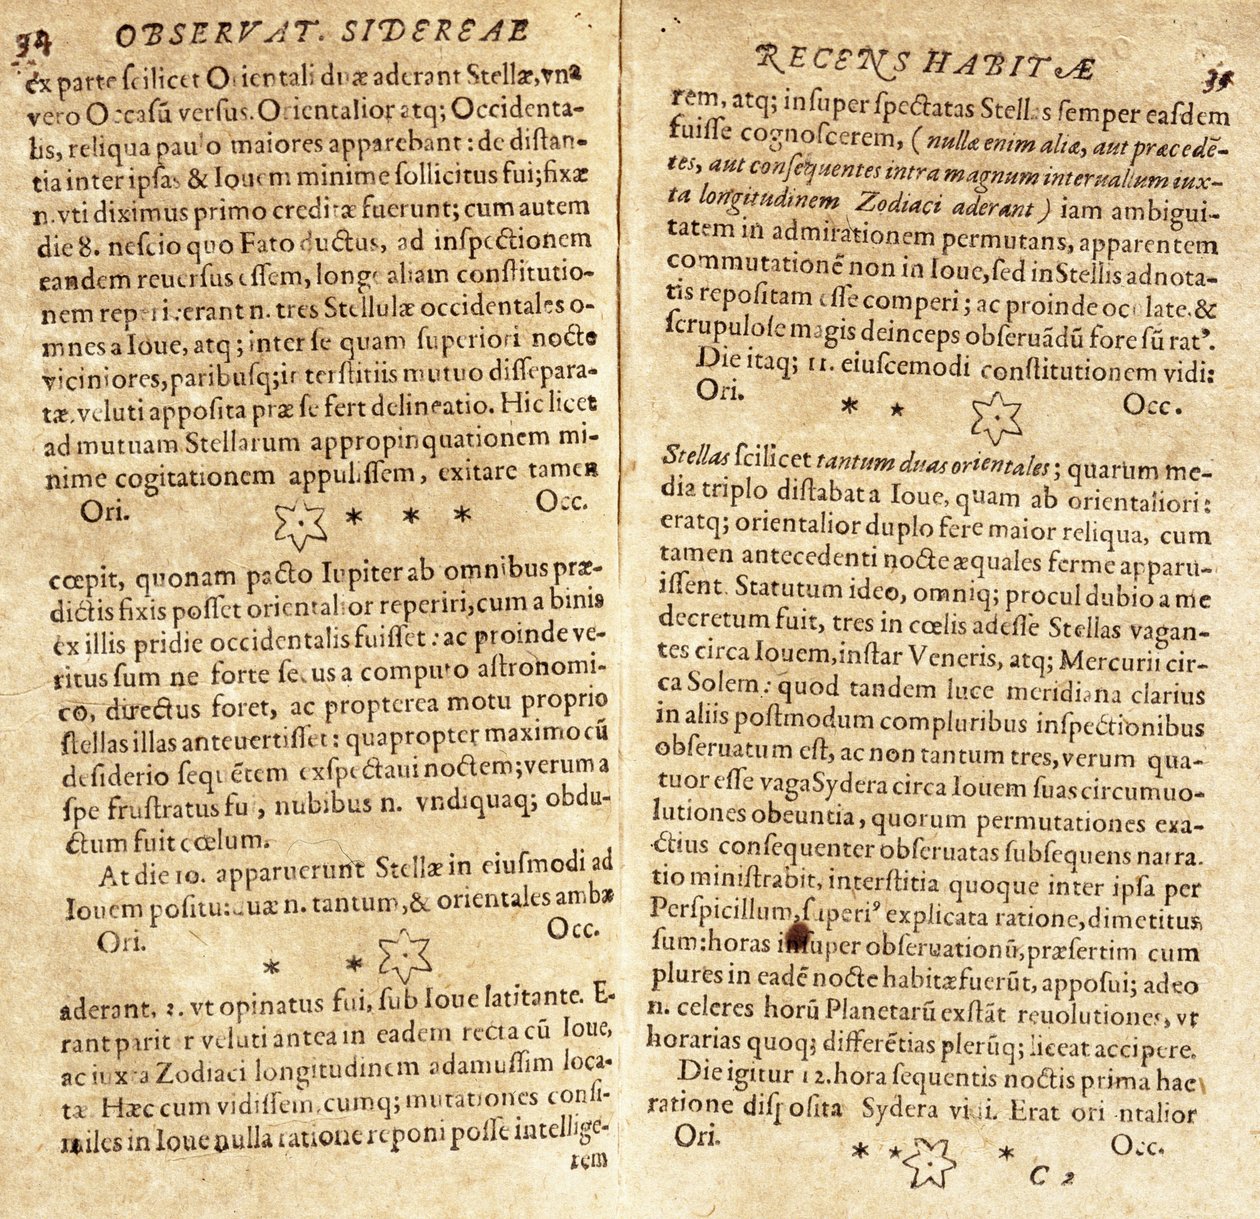 34 OBSERVAT. SIDEREAE
ex parte ſcilicet Orientali duæ aderant Stellæ, vna
vero Occaſū verſus. Orientalior atq; Occidenta-
lis, reliqua paulo maiores apparebant: de diſtan-
tia inter ipſas & Iouem minime ſollicitus fui; fixæ
n. vti diximus primo creditæ fuerunt; cum autem
die 8. neſcio quo Fato ductus, ad inſpectionem
eandem reuerſus eſſem, longe aliam conſtitutio-
nem reperi: erant n. tres Stellulæ occidentales o-
mnes a Ioue, atq; inter ſe quam ſuperiori nocte
viciniores, paribuſq; interſtitiis mutuo diſſepara-
tæ, veluti appoſita præ ſe fert delineatio. Hic licet
ad mutuam Stellarum appropinquationem mi-
nime cogitationem appuliſſem, exitare tamen
Ori. * * * Occ.
cœpit, quonam pacto Iupiter ab omnibus præ-
dictis fixis poſſet orientalior reperiri, cum a binis
ex illis pridie occidentalis fuiſſet: ac proinde ve-
ritus ſum ne forte ſecus a computo aſtronomi-
co, directus foret, ac propterea motu proprio
ſtellas illas anteuertiſſet: quapropter maximo cū
deſiderio ſequētem exſpectaui noctem; verum a
ſpe fruſtratus fui, nubibus n. vndiquaq; obdu-
ctum fuit cœlum.
At die 10. apparuerunt Stellæ in eiuſmodi ad
Iouem poſitu: duæ n. tantum, & orientales ambæ
Ori. * * Occ.
aderant, 3. vt opinatus fui, ſub Ioue latitante. E-
rant pariter veluti antea in eadem recta cū Ioue,
ac iuxta Zodiaci longitudinem adamuſſim loca-
tæ Hæc cum vidiſſem, cumq; mutationes conſi-
miles in Ioue nulla ratione reponi poſſe intellige-
rem
RECENS HABITÆ 35
rem, atq; inſuper ſpectatas Stellas ſemper eaſdem
fuiſſe cognoſcerem, (nullæ enim aliæ, aut præcedē-
tes, aut conſequentes intra magnum interuallum iux-
ta longitudinem Zodiaci aderant) iam ambigui-
tatem in admirationem permutans, apparentem
commutationē non in Ioue, ſed in Stellis adnota-
tis repoſitam eſſe comperi; ac proinde oculate. &
ſcrupuloſe magis deinceps obſeruādū fore ſū rat⁹.
Die itaq; 11. eiuſcemodi conſtitutionem vidi:
Ori. * * Occ.
Stellas ſcilicet tantum duas orientales; quarum me-
dia triplo diſtabat a Ioue, quam ab orientaliori:
eratq; orientalior duplo fere maior reliqua, cum
tamen antecedenti nocte æquales ferme apparu-
iſſent. Statutum ideo, omniq; procul dubio a me
decretum fuit, tres in cœlis adeſſe Stellas vagan-
tes circa Iouem, inſtar Veneris, atq; Mercurii cir-
ca Solem: quod tandem luce meridiana clarius
in aliis poſtmodum compluribus inſpectionibus
obſeruatum eſt, ac non tantum tres, verum qua-
tuor eſſe vaga Sydera circa Iouem ſuas circumuo-
lutiones obeuntia, quorum permutationes exa-
ctius conſequenter obſeruatas ſubſequens narra.
tio miniſtrabit, interſtitia quoque inter ipſa per
Perſpicillum, ſuperi⁹ explicata ratione, dimetitus
ſum: horas inſuper obſeruationū, præſertim cum
plures in eadē nocte habitæ fuerūt, appoſui; adeo
n. celeres horū Planetarū exſtāt reuolutiones, vt
horarias quoq; differētias plerūq; liceat accipere.
Die igitur 12. hora ſequentis noctis prima hac
ratione diſpoſita Sydera vidi. Erat orientalior
Ori. * * * Occ.
C 2